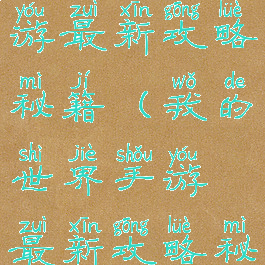 yóu zuì xīn gōng lüè
游最新攻略
mì jí wǒ de
秘籍(我的
shì jiè shǒu yóu
世界手游
zuì xīn gōng lüè mì
最新攻略秘